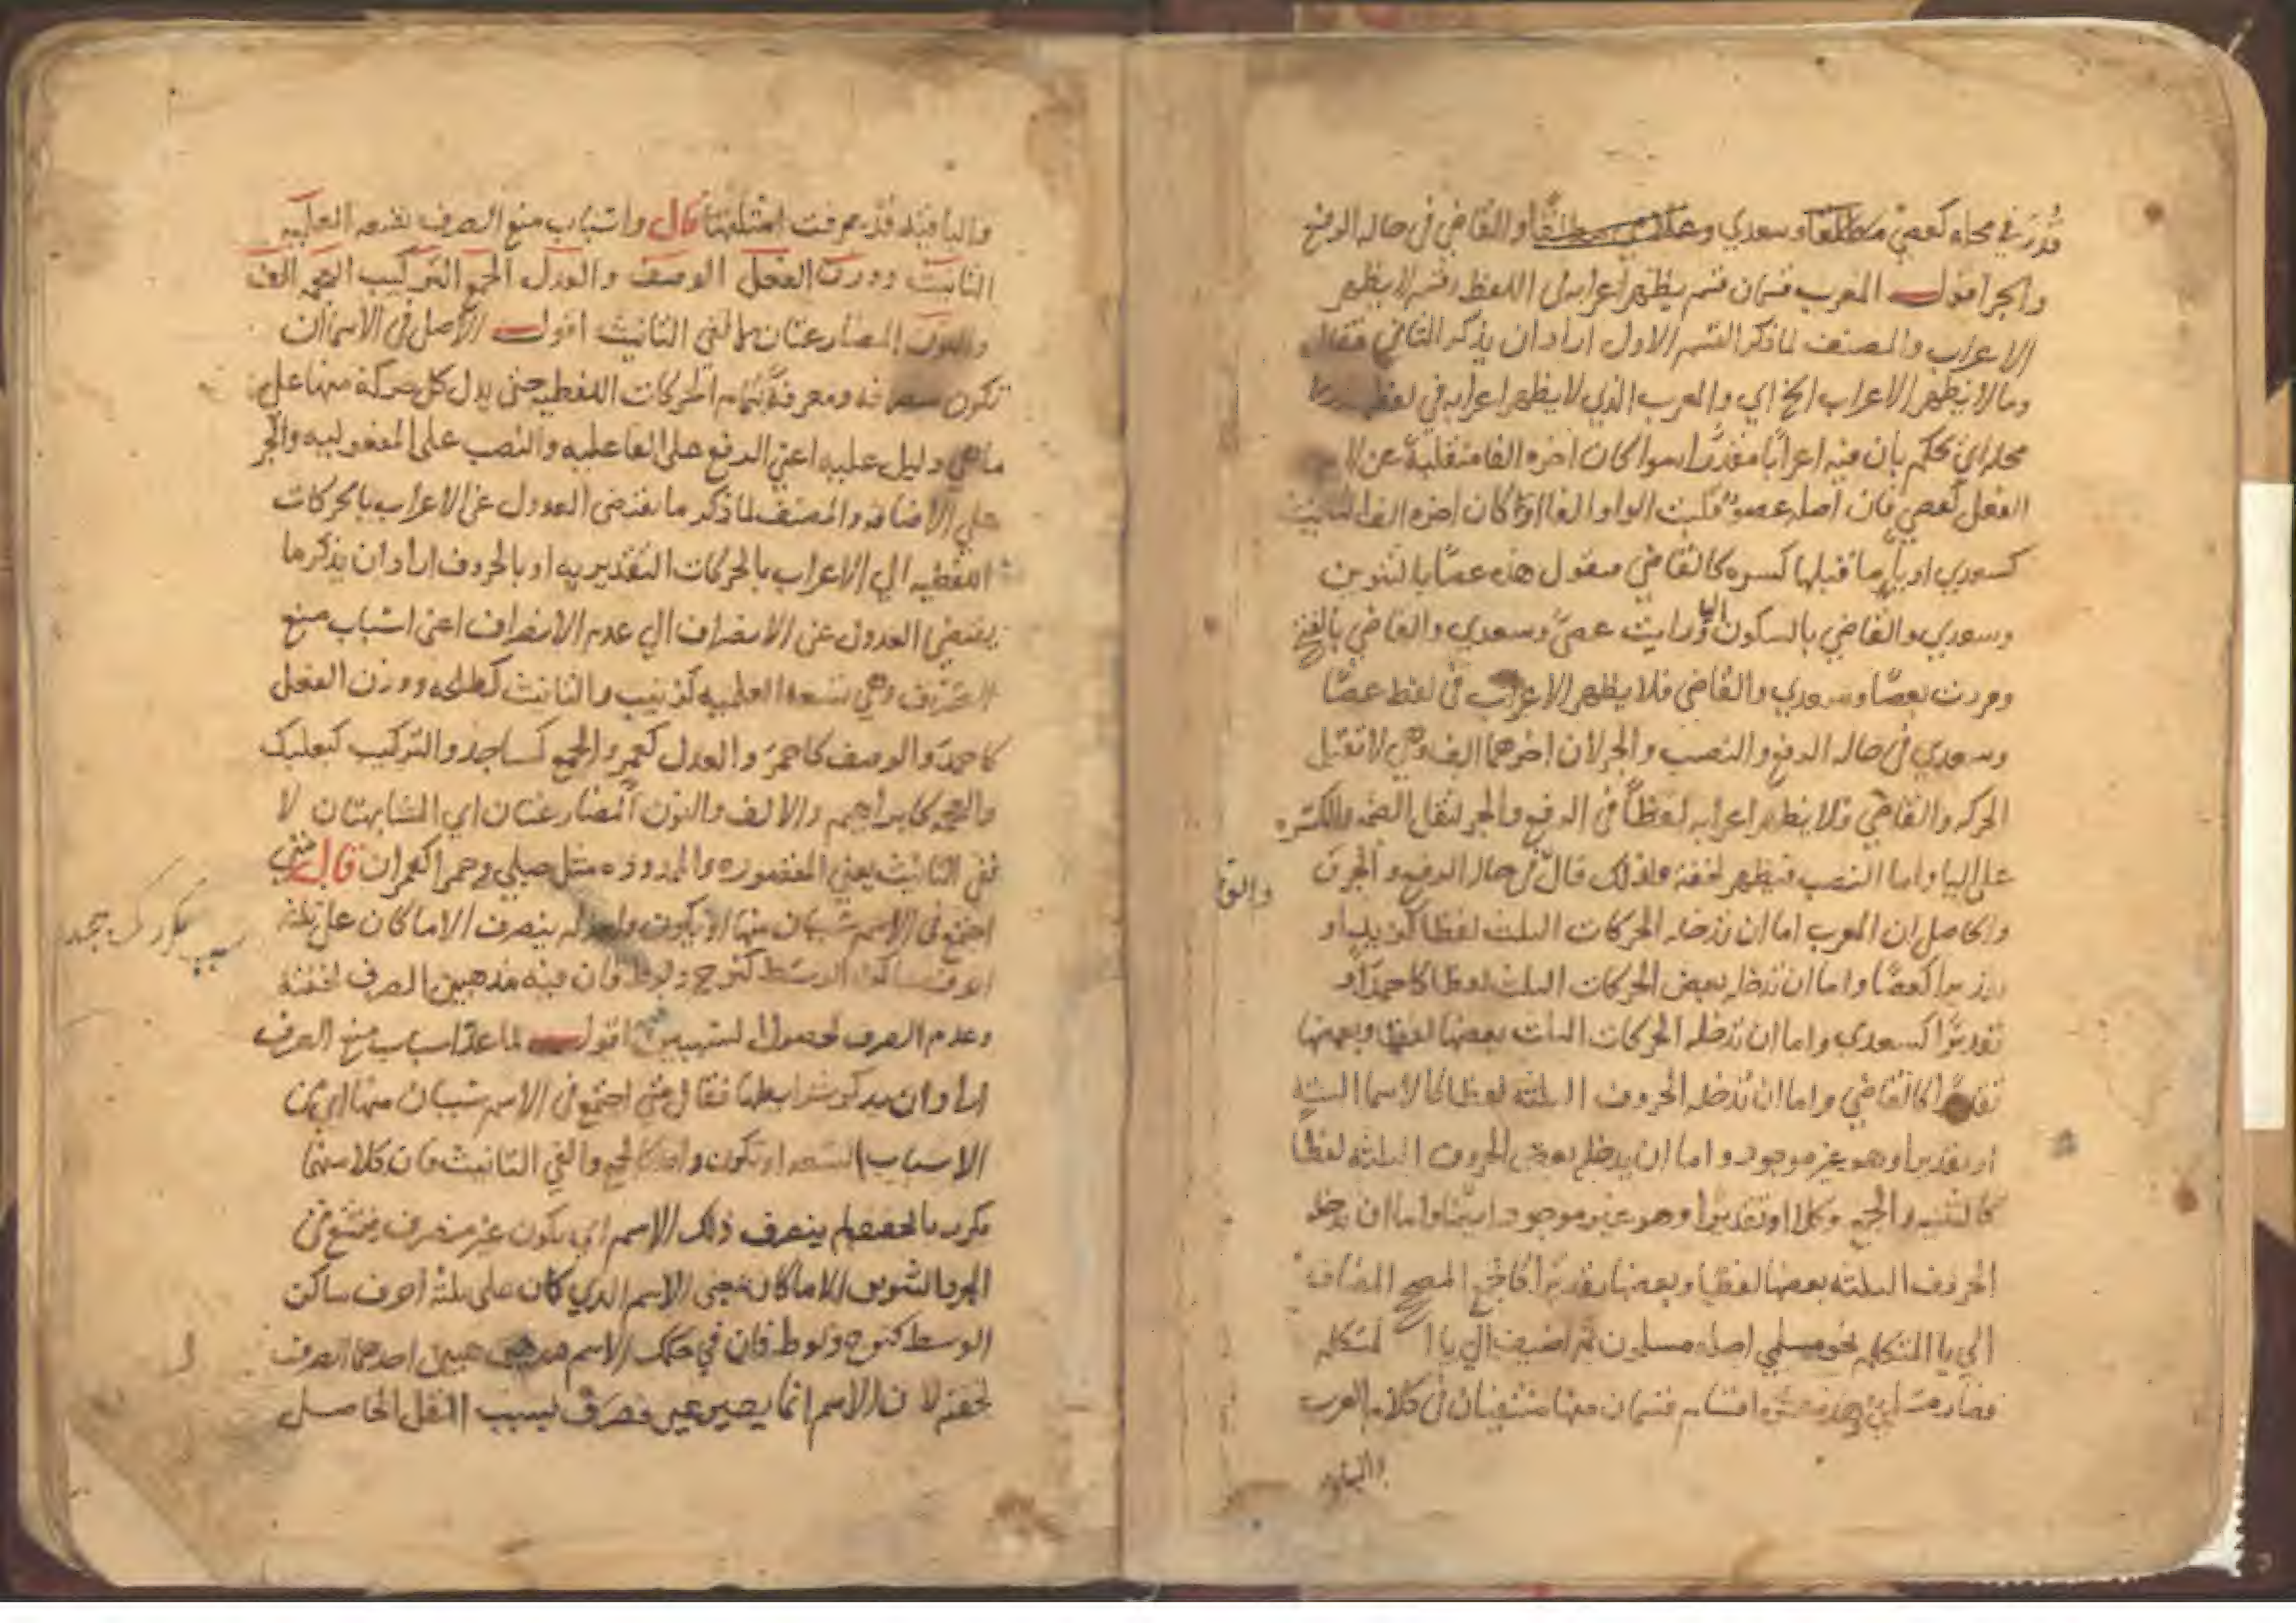 قدر في محله كعصى مطلقا وسعدي والقاضي في حاله الرفع
والجر اقول المعرب قسمان قسم يظهر اعرابه في اللفظ وقسم لا يظهر
الاعراب والمصنف لما ذكر القسم الاول اراد ان يذكر الثاني فقال
وما لا يظهر الاعراب الخ اي والمعرب الذي لا يظهر اعرابه في لفظه
محله اي يحكم بان فيه اعرابا مقدرا سوا كان اخره الفا منقلبة عن لام
الفعل كعصى فان اصله عصو قلبت الواو الفا او كان اخره الف التانيث
كسعدي او يا ما قبلها كسره كالقاضي فيقول هذه عصا بالتنوين
وسعدي والقاضي بالسكون اليا ورايت عصى وسعدي والقاضي بالفتح
ومررت بعصا وسعدي والقاضي فلا يظهر الاعراب في لفظ عصا
وسعدي في حاله الرفع والنصب والجر لان اخرهما الف وهي لا تقبل
الحركه والقاضي فلا يظهر اعرابه لفظا في الرفع والجر لثقل الضمه والكسره
على اليا واما النصب فيظهر لخفته ولذلك قال في حال الرفع والجر
والحاصل ان المعرب اما ان تدخله الحركات الثلث لفظا كزيد او
تقديرا كعصا واما ان تدخله بعض الحركات الثلث لفظا كاحمد او
تقديرا كسعدي واما ان تدخله الحركات الثلث بعضها لفظا وبعضها
تقديرا كالقاضي واما ان تدخله الحروف الثلثه لفظا كالاسما السته
او تقديرا وهو غير موجود واما ان يدخله بعض الحروف الثلثه لفظا
كالتثنيه والجمع وكلا او تقديرا وهو غير موجود ايضا واما ان تدخله
الحروف الثلثه بعضها لفظا وبعضها تقديرا كالجمع المصحح المضاف
الي يا المتكلم نحو مسلمي اصله مسلمون ثم اضيف الي يا المتكلم
فصار مسلمي فهذه عشره اقسام قسمان منها منتفيان في كلام العرب
والباقيه قد عرفت امثلتها قال واسباب منع الصرف تسعه العلميه
التانيث ووزن الفعل الوصف والعدل الجمع التركيب العجمه الالف
والنون المضارعتان لالفي التانيث اقول الاصل في الاسم ان
تكون منصرفه ومعربة بتمام الحركات اللفظيه حتى يدل كل حركة منها على
ما هي دليل عليه اعني الرفع على الفاعليه والنصب على المفعوليه والجر
علي الاضافه والمصنف لما ذكر ما يقتضي العدول عن الاعراب بالحركات
اللفظيه الي الاعراب بالحركات التقديريه او بالحروف اراد ان يذكر ما
يقتضي العدول عن الانصراف الي عدم الانصراف اعني اسباب منع
الصرف وهي تسعه العلميه كزينب والتانيث كطلحه ووزن الفعل
كاحمد والوصف كاحمر والعدل كعمر والجمع كمساجد والتركيب كبعلبك
والعجمه كابراهيم والالف والنون المضارعتان اي المشابهتان لا
لفي التانيث يعني المقصوره والممدوده مثل حبلي وحمرا كعمران قال متي
اجتمع في الاسم سببان منها او يكون واحد لم ينصرف الا ما كان على ثلثة
احرف ساكن الوسط كنوح ولوط فان فيه مذهبين الصرف لخفته
وعدم الصرف لحصول السببين اقول لما عد اسباب منع الصرف
اراد ان يذكر شرايطها فقال متي اجتمع في الاسم سببان منها اي من
الاسباب التسعه او يكون واحد كالجمع والفي التانيث فان كلا منهما
مكرر بالحقيقه لم ينصرف ذلك الاسم اي يكون غير منصرف يمتنع من
الجر والتنوين الا ما كان يعني الاسم الذي كان على ثلثة احرف ساكن
الوسط كنوح ولوط فان في ذلك الاسم مذهبين احدهما الصرف
لخفته لان الاسم انما يصير غير منصرف بسبب الثقل الحاصل